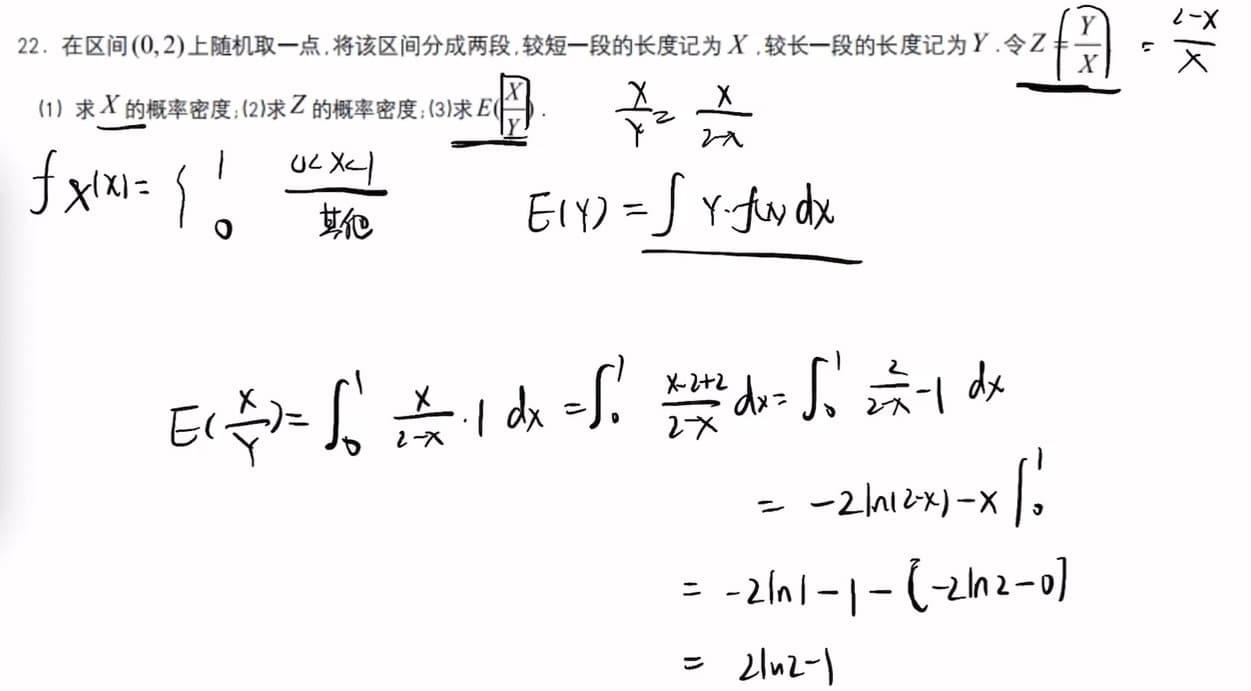 22. 在区间(0,2)上随机取一点,将该区间分成两段,较短一段的长度记为X,较长一段的长度记为Y.令Z=Y/X = (2-x)/x
(1) 求X的概率密度;(2)求Z的概率密度;(3)求E(X/Y).
X/Y = x/(2-x)
fX(x)= { 1 0<x<1
0 其他
E(Y) = ∫ Y·f(x) dx
E(X/Y)= ∫₀¹ x/(2-x) ·1 dx = ∫₀¹ (x-2+2)/(2-x) dx = ∫₀¹ 2/(2-x) -1 dx
= -2ln(2-x) -x |₀¹
= -2ln1 -1 - [-2ln2-0]
= 2ln2-1